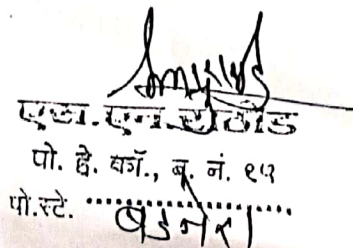 एस. एन. राठोड
पो. हे. कॉ., बू. नं. १५
पो.स्टे. बडनेरा